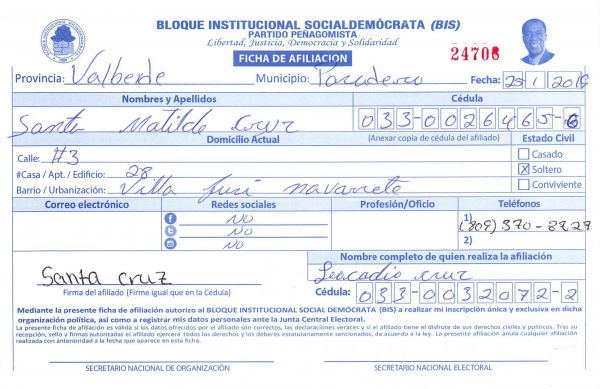 BLOQUE INSTITUCIONAL SOCIALDEMÓCRATA (BIS)
PARTIDO PEÑAGOMISTA
Libertad, Justicia, Democracia y Solidaridad
FICHA DE AFILIACION
24706
Provincia: Valverde Municipio: Fecha: 25/1/2019
Nombres y Apellidos Cédula
Santa Matilde Cruz 033-0026465-6
Domicilio Actual (Anexar copia de cédula del afiliado) Estado Civil
Calle: #3 Casado
#Casa / Apt. / Edificio: 28 X Soltero
Barrio / Urbanización: Villa navarrete Conviviente
Correo electrónico Redes sociales Profesión/Oficio Teléfonos
NO 1)
NO (809) 370-8229
NO 2)
Nombre completo de quien realiza la afiliación
Santa Cruz Leocadio Cruz
Firma del afiliado (Firme igual que en la Cédula) Cédula: 033-0032072-2
Mediante la presente ficha de afiliación autorizo al BLOQUE INSTITUCIONAL SOCIAL DEMÓCRATA (BIS) a realizar mi inscripción única y exclusiva en dicha
organización política, así como a registrar mis datos personales ante la Junta Central Electoral.
La presente ficha de afiliación es válida si los datos ofrecidos por el afiliado son correctos, las declaraciones veraces y si el afiliado tiene el disfrute de sus derechos civiles y políticos. Tras su
recepción, sello y firmas autorizadas el afiliado ejercerá todos los derechos y los deberes estatutariamente sancionados, de acuerdo a la ley. La presente afiliación anula cualquier afiliación
realizada con anterioridad a la fecha que aparece en esta ficha.
SECRETARIO NACIONAL DE ORGANIZACIÓN SECRETARIO NACIONAL ELECTORAL